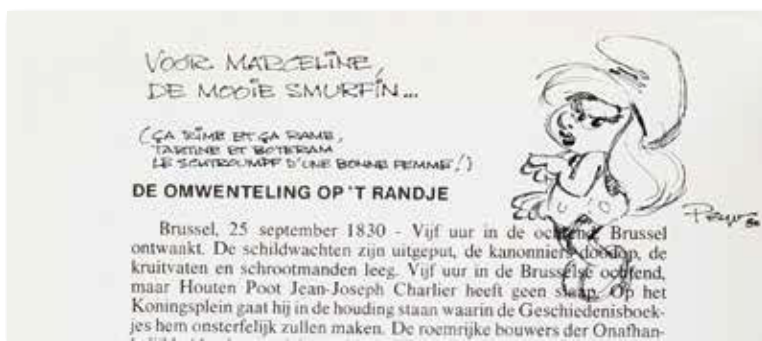 VOOR MARCELINE,
DE MOOIE SMURFIN...
(ÇA RIME ET ÇA RAME,
TARTINE ET BOTERAM
LE SCHTROUMPF D'UNE BONNE FEMME!)
Peyo
DE OMWENTELING OP 'T RANDJE
Brussel, 25 september 1830 - Vijf uur in de ochtend. Brussel
ontwaakt. De schildwachten zijn uitgeput, de kanonniers doodop, de
kruitvaten en schrootmanden leeg. Vijf uur in de Brusselse ochtend,
maar Houten Poot Jean-Joseph Charlier heeft geen slaap. Op het
Koningsplein gaat hij in de houding staan waarin de Geschiedenisboek-
jes hem onsterfelijk zullen maken. De roemrijke bouwers der Onafhan-